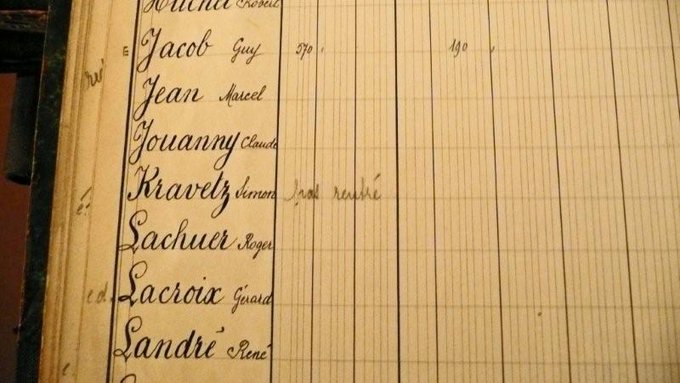 Robert
E Jacob Guy 570 190
Jean Marcel
Jouanny Claude
Kravetz Simon pas rentré
Lachuer Roger
Lacroix Gérard
Landré René